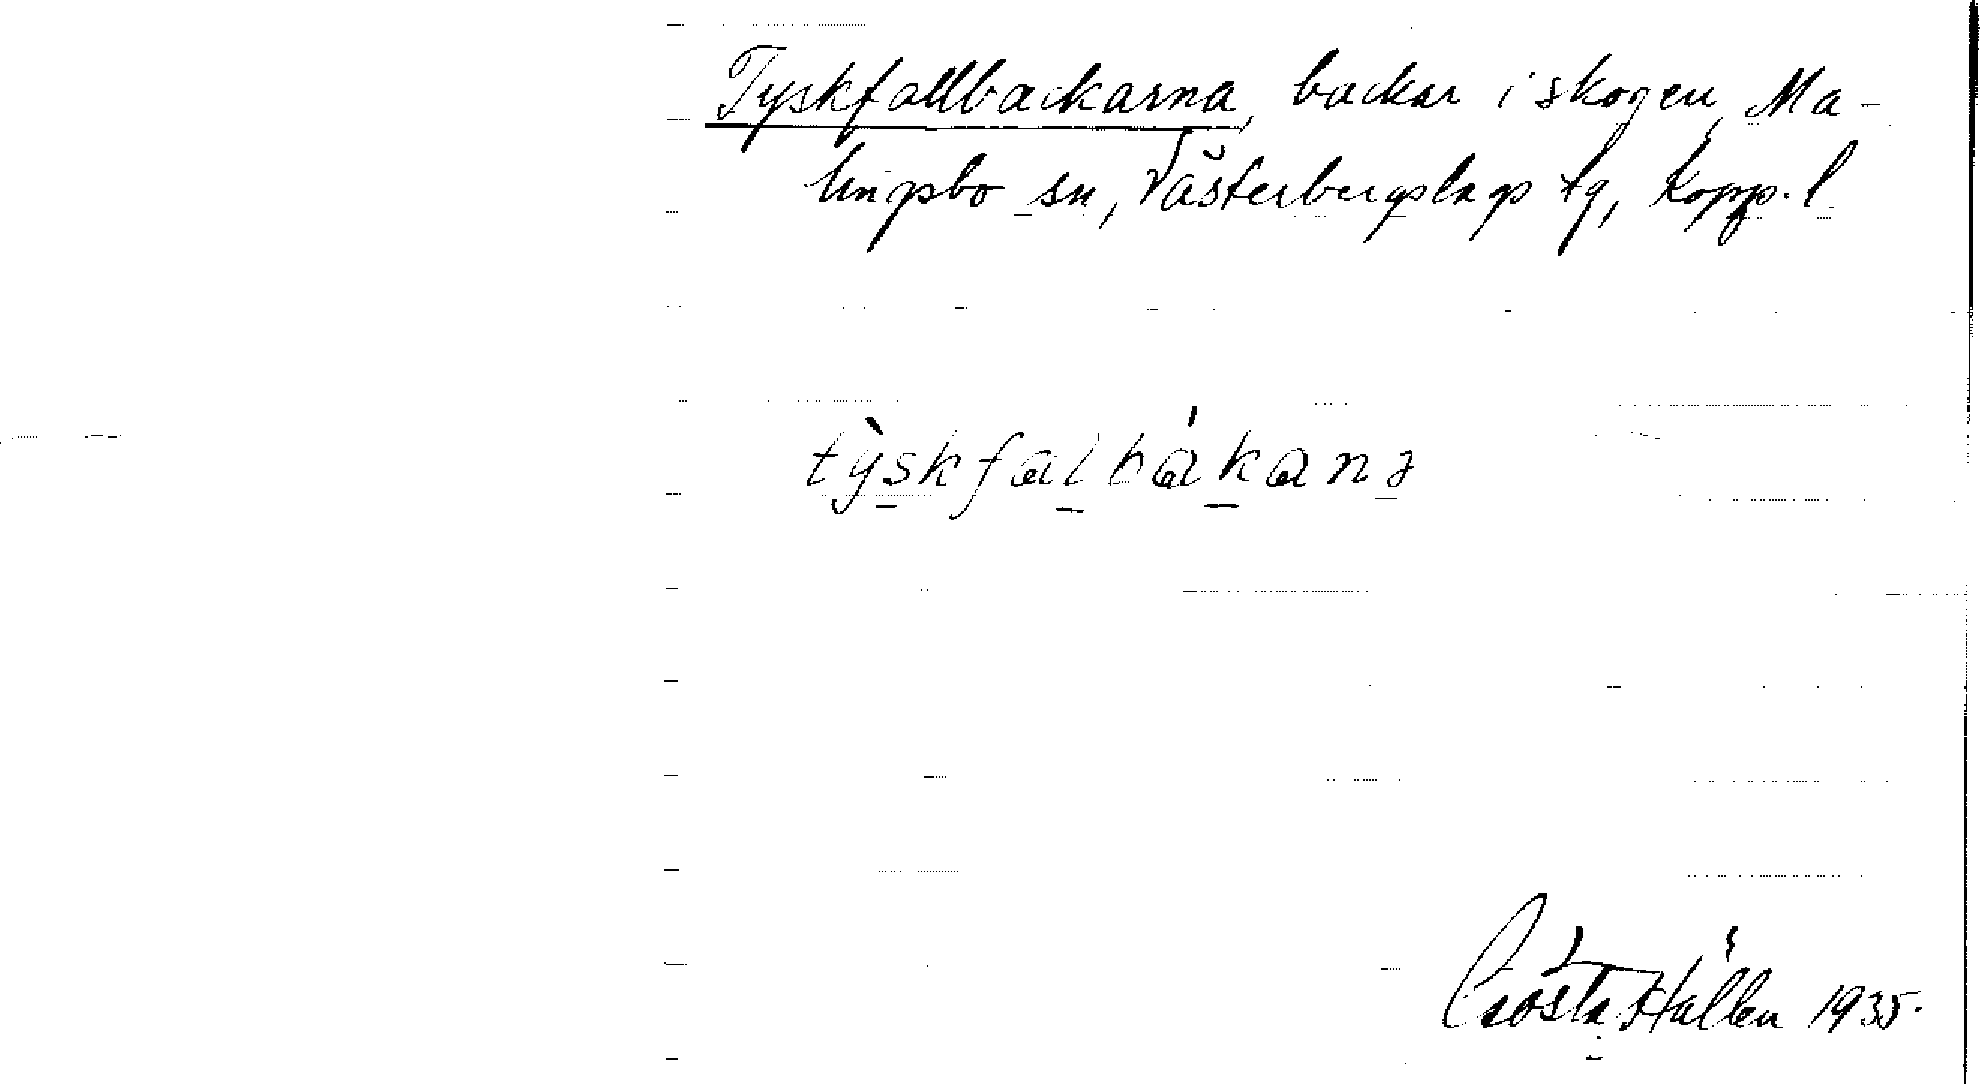 Tyskfallbackarna, backar i skogen, Ma-
lingsbo sn, Västerbergslags tg, Kopp. l
tỳskfalbákanə
Gösta Hallén 1935.